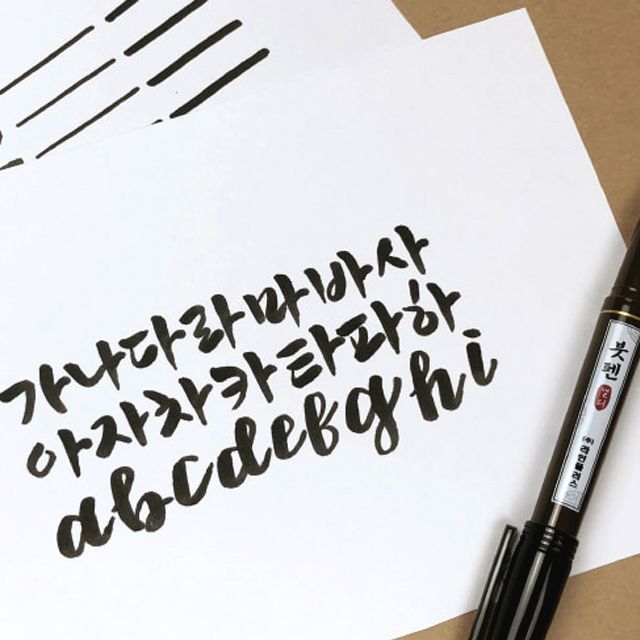 가나다라마바사
아자차카타파하
abcdefghi
붓펜
(주)